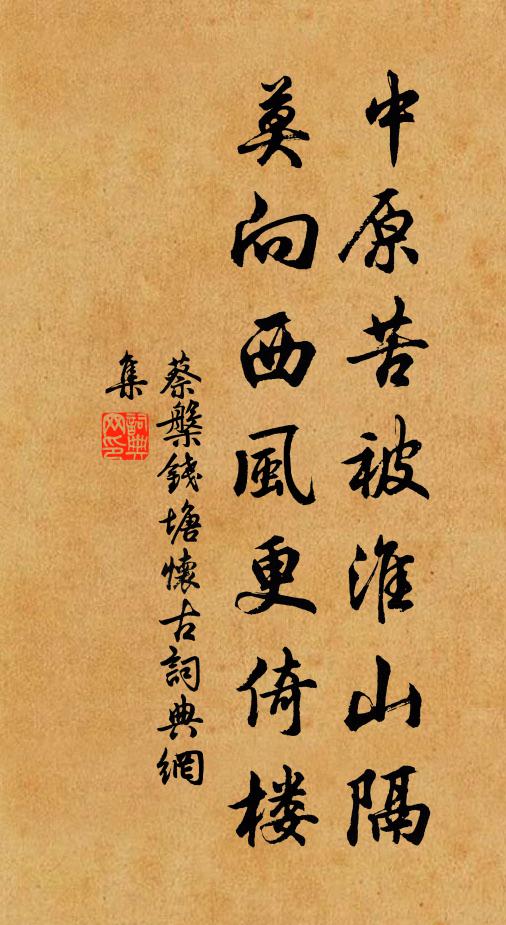 中原苦被淮山隔
莫向西風更倚楼
蔡槃錢塘懷古詞典網
集
詞典网印